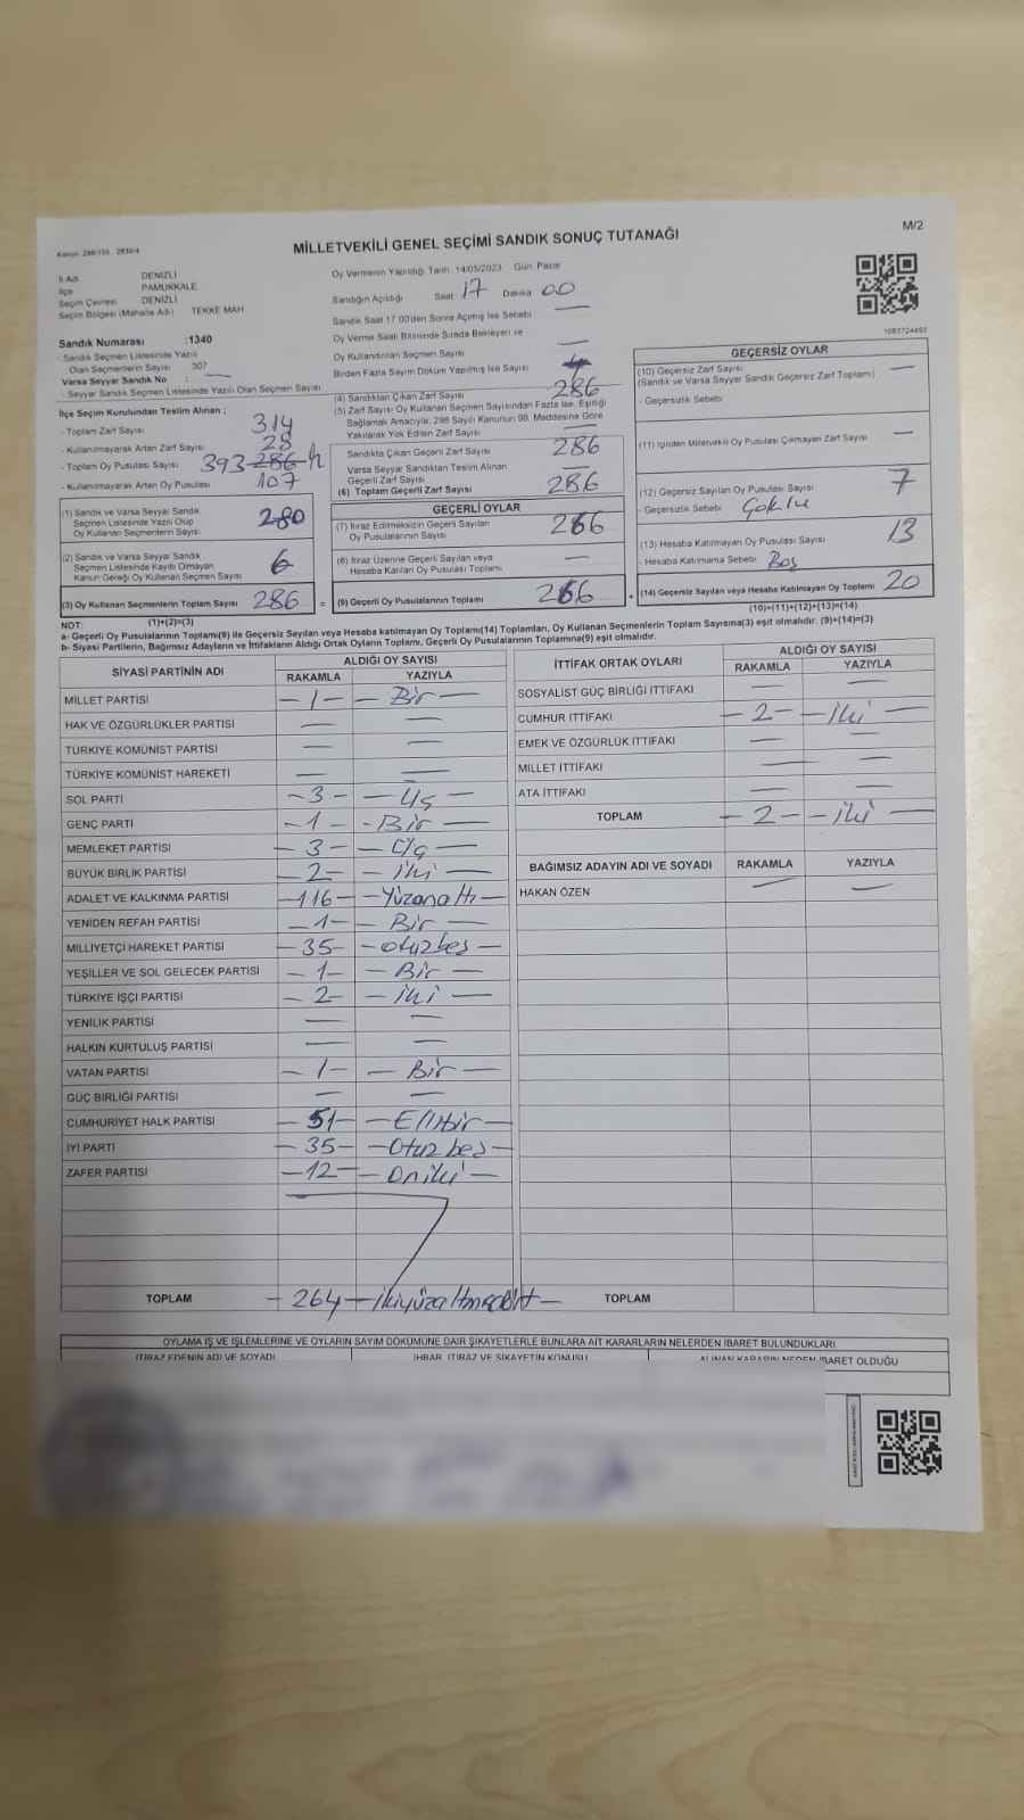 M/2
MİLLETVEKİLİ GENEL SEÇİMİ SANDIK SONUÇ TUTANAĞI
Kanun: 298/105 2839/4
İl Adı DENİZLİ
İlçe PAMUKKALE
Seçim Çevresi DENİZLİ
Seçim Bölgesi (Mahalle Adı) TEKKE MAH
Sandık Numarası :1340
- Sandık Seçmen Listesinde Yazılı
Olan Seçmenlerin Sayısı 307
Varsa Seyyar Sandık No :
- Seyyar Sandık Seçmen Listesinde Yazılı Olan Seçmen Sayısı
İlçe Seçim Kurulundan Teslim Alınan ;
- Toplam Zarf Sayısı 314
- Kullanılmayarak Artan Zarf Sayısı 28
- Toplam Oy Pusulası Sayısı 393 286
- Kullanılmayarak Artan Oy Pusulası 107
(1) Sandık ve Varsa Seyyar Sandık
Seçmen Listesinde Yazılı Olup
Oy Kullanan Seçmenlerin Sayısı 280
(2) Sandık ve Varsa Seyyar Sandık
Seçmen Listesinde Kayıtlı Olmayan
Kanun Gereği Oy Kullanan Seçmen Sayısı 6
(3) Oy Kullanan Seçmenlerin Toplam Sayısı 286
(1)+(2)=(3)
Oy Vermenin Yapıldığı Tarih: 14/05/2023 Gün: Pazar
Sandığın Açıldığı Saat 17 Dakika 00
Sandık Saat 17.00'den Sonra Açılmış İse Sebebi —
Oy Verme Saati Bitiminde Sırada Bekleyen ve
Oy Kullandırılan Seçmen Sayısı —
Birden Fazla Sayım Döküm Yapılmış İse Sayısı
(4) Sandıktan Çıkan Zarf Sayısı 286
(5) Zarf Sayısı Oy Kullanan Seçmen Sayısından Fazla İse, Eşitliği
Sağlamak Amacıyla, 298 Sayılı Kanunun 98. Maddesine Göre
Yakılarak Yok Edilen Zarf Sayısı
Sandıkta Çıkan Geçerli Zarf Sayısı 286
Varsa Seyyar Sandıktan Teslim Alınan
Geçerli Zarf Sayısı —
(6) Toplam Geçerli Zarf Sayısı 286
GEÇERLİ OYLAR
(7) İtiraz Edilmeksizin Geçerli Sayılan
Oy Pusulalarının Sayısı 266
(8) İtiraz Üzerine Geçerli Sayılan veya
Hesaba Katılan Oy Pusulası Toplamı —
= (9) Geçerli Oy Pusulalarının Toplamı 266
1083724492
GEÇERSİZ OYLAR
(10) Geçersiz Zarf Sayısı —
(Sandık ve Varsa Seyyar Sandık Geçersiz Zarf Toplamı)
- Geçersizlik Sebebi
(11) İçinden Milletvekili Oy Pusulası Çıkmayan Zarf Sayısı —
(12) Geçersiz Sayılan Oy Pusulası Sayısı 7
- Geçersizlik Sebebi Çoklu
(13) Hesaba Katılmayan Oy Pusulası Sayısı 13
- Hesaba Katılmama Sebebi Boş
+ (14) Geçersiz Sayılan veya Hesaba Katılmayan Oy Toplamı 20
(10)+(11)+(12)+(13)=(14)
NOT:
a- Geçerli Oy Pusulalarının Toplamı(9) ile Geçersiz Sayılan veya Hesaba katılmayan Oy Toplamı(14) Toplamları, Oy Kullanan Seçmenlerin Toplam Sayısına(3) eşit olmalıdır. (9)+(14)=(3)
b- Siyasi Partilerin, Bağımsız Adayların ve İttifakların Aldığı Ortak Oyların Toplamı, Geçerli Oy Pusulalarının Toplamına(9) eşit olmalıdır.
SİYASİ PARTİNİN ADI ALDIĞI OY SAYISI
RAKAMLA YAZIYLA
MİLLET PARTİSİ - 1 - - Bir -
HAK VE ÖZGÜRLÜKLER PARTİSİ — —
TÜRKİYE KOMÜNİST PARTİSİ — —
TÜRKİYE KOMÜNİST HAREKETİ — —
SOL PARTİ - 3 - - Üç -
GENÇ PARTİ - 1 - - Bir -
MEMLEKET PARTİSİ - 3 - - Üç -
BÜYÜK BİRLİK PARTİSİ - 2 - - iki -
ADALET VE KALKINMA PARTİSİ - 116 - - Yüzonaltı -
YENİDEN REFAH PARTİSİ - 1 - - Bir -
MİLLİYETÇİ HAREKET PARTİSİ - 35 - - otuzbeş -
YEŞİLLER VE SOL GELECEK PARTİSİ - 1 - - Bir -
TÜRKİYE İŞÇİ PARTİSİ - 2 - - iki -
YENİLİK PARTİSİ — —
HALKIN KURTULUŞ PARTİSİ — —
VATAN PARTİSİ - 1 - - Bir -
GÜÇ BİRLİĞİ PARTİSİ — —
CUMHURİYET HALK PARTİSİ - 51 - - Ellibir -
İYİ PARTİ - 35 - - Otuzbeş -
ZAFER PARTİSİ - 12 - - Oniki -
TOPLAM - 264 - ikiyüzaltmışdört -
İTTİFAK ORTAK OYLARI ALDIĞI OY SAYISI
RAKAMLA YAZIYLA
SOSYALİST GÜÇ BİRLİĞİ İTTİFAKI — —
CUMHUR İTTİFAKI - 2 - - iki -
EMEK VE ÖZGÜRLÜK İTTİFAKI — —
MİLLET İTTİFAKI — —
ATA İTTİFAKI — —
TOPLAM - 2 - - iki -
BAĞIMSIZ ADAYIN ADI VE SOYADI RAKAMLA YAZIYLA
HAKAN ÖZEN — —
TOPLAM
OYLAMA İŞ VE İŞLEMLERİNE VE OYLARIN SAYIM DÖKÜMÜNE DAİR ŞİKAYETLERLE BUNLARA AİT KARARLARIN NELERDEN İBARET BULUNDUKLARI
İTİRAZ EDENİN ADI VE SOYADI İHBAR, İTİRAZ VE ŞİKAYETİN KONUSU ALINAN KARARIN NEDEN İBARET OLDUĞU